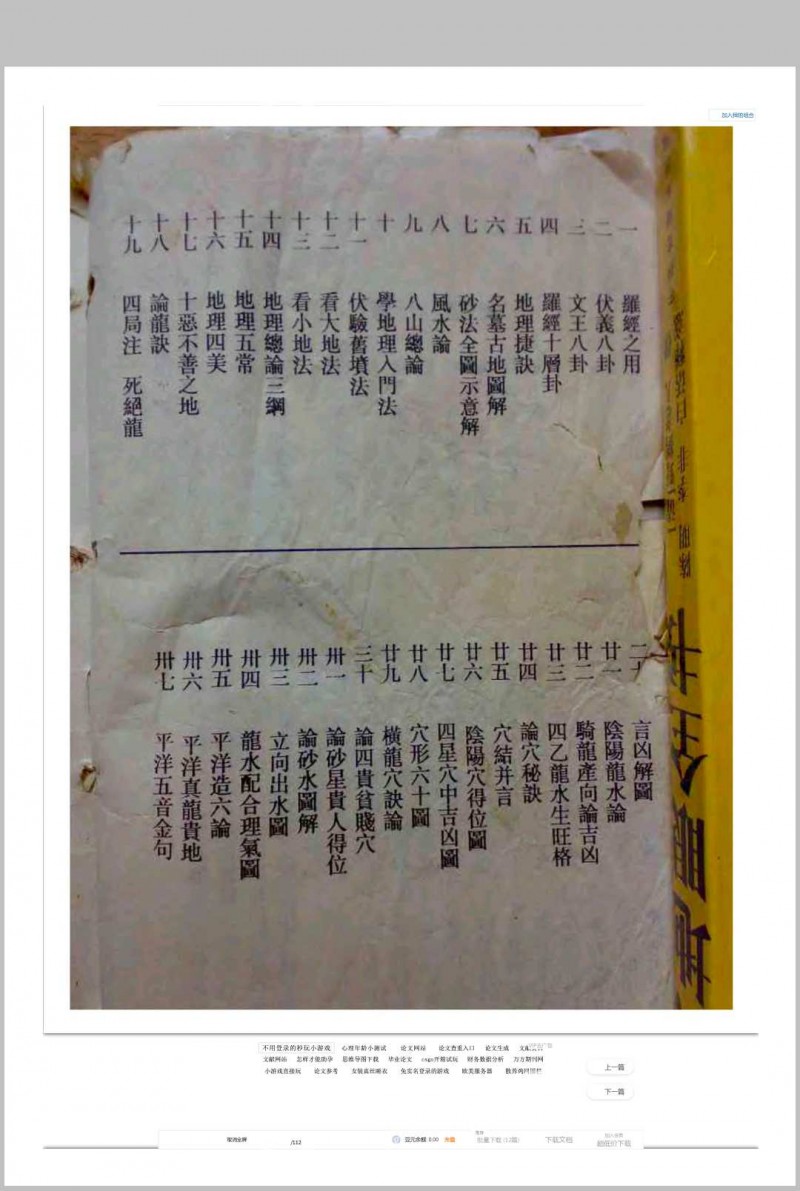 加入阅读组合
一 羅經之用
二 伏義八卦
三 文王八卦
四 羅經十層卦
五 地理捷訣
六 名墓古地圖解
七 砂法全圖示意解
八 風水論
九 八山總論
十 學地理入門法
十一 伏驗舊墳法
十二 看大地法
十三 看小地法
十四 地理總論三綱
十五 地理五常
十六 地理四美
十七 十惡不善之地
十八 論龍訣
十九 四局注 死絕龍
二十 言凶解圖
廿一 陰陽龍水論
廿二 騎龍產向論吉凶
廿三 四乙龍水生旺格
廿四 論穴秘訣
廿五 穴結并言
廿六 陰陽穴得位圖
廿七 四星穴中吉凶圖
廿八 穴形六十圖
廿九 橫龍穴訣論
三十 論四貴貧賤穴
卅一 論砂星貴人得位
卅二 論砂水圖解
卅三 立向出水圖
卅四 龍水配合理氣圖
卅五 平洋造六論
卅六 平洋真龍貴地
卅七 平洋五音金句
不用登录的秒玩小游戏 心理年龄小测试 论文网站 论文查重入口 论文生成
文献网站 怎样才能助孕 思维导图下载 毕业论文 csgo开箱试玩 财务数据分析 万方期刊网
小游戏直接玩 论文参考 女装真丝睡衣 免实名登录的游戏 欧美服务器
上一篇
下一篇
/112
豆元余额 0.00 充值
批量下载 (12篇)
下载文档
超低价下载